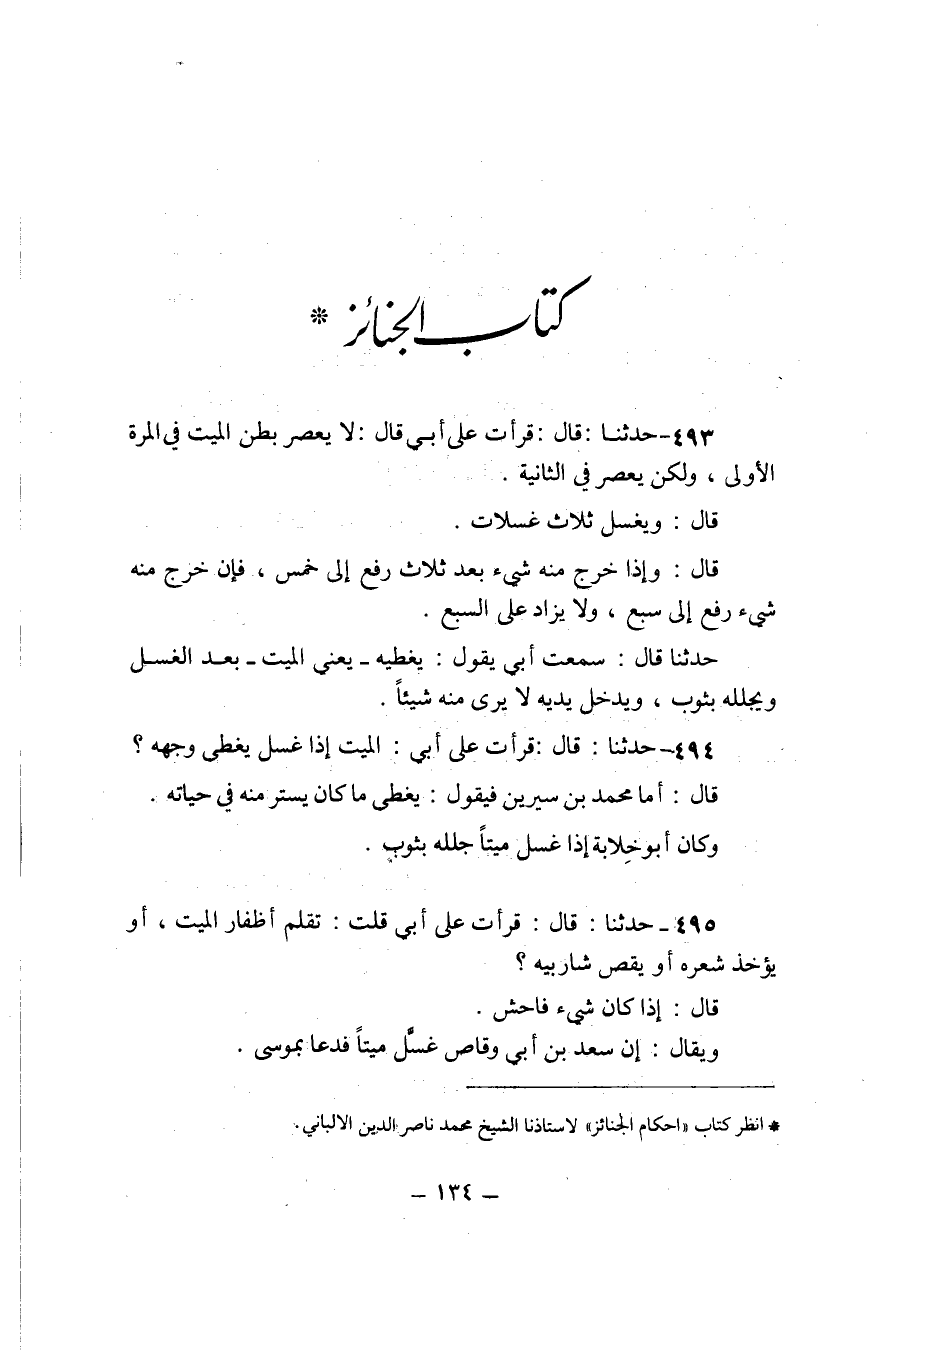 كتاب الجنائز *
٤٩٣-حدثنا :قال :قرأت على أبي قال :لا يعصر بطن الميت في المرة
الأولى ، ولكن يعصر في الثانية .
قال : ويغسل ثلاث غسلات .
قال : وإذا خرج منه شيء بعد ثلاث رفع إلى خمس ، فإن خرج منه
شيء رفع إلى سبع ، ولا يزاد على السبع .
حدثنا قال : سمعت أبي يقول : يغطيه ـ يعني الميت ـ بعد الغسل
ويجلله بثوب ، ويدخل يديه لا يرى منه شيئاً .
٤٩٤-حدثنا : قال :قرأت على أبي : الميت إذا غسل يغطى وجهه ؟
قال : أما محمد بن سيرين فيقول : يغطى ما كان يستر منه في حياته .
وكان أبو خلابة إذا غسل ميتاً جلله بثوب .
٤٩٥ ـ حدثنا : قال : قرأت على أبي قلت : تقلم أظفار الميت ، أو
يؤخذ شعره أو يقص شاربيه ؟
قال : إذا كان شيء فاحش .
ويقال : إن سعد بن أبي وقاص غسَّل ميتاً فدعا بموسى .
* انظر كتاب «احكام الجنائز» لاستاذنا الشيخ محمد ناصر الدين الالباني .
– ١٣٤ –